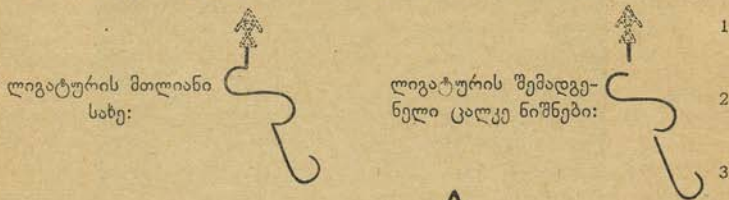 ლიგატურის მთლიანი
სახე:
ლიგატურის შემადგე-
ნელი ცალკე ნიშნები:
1
2
3